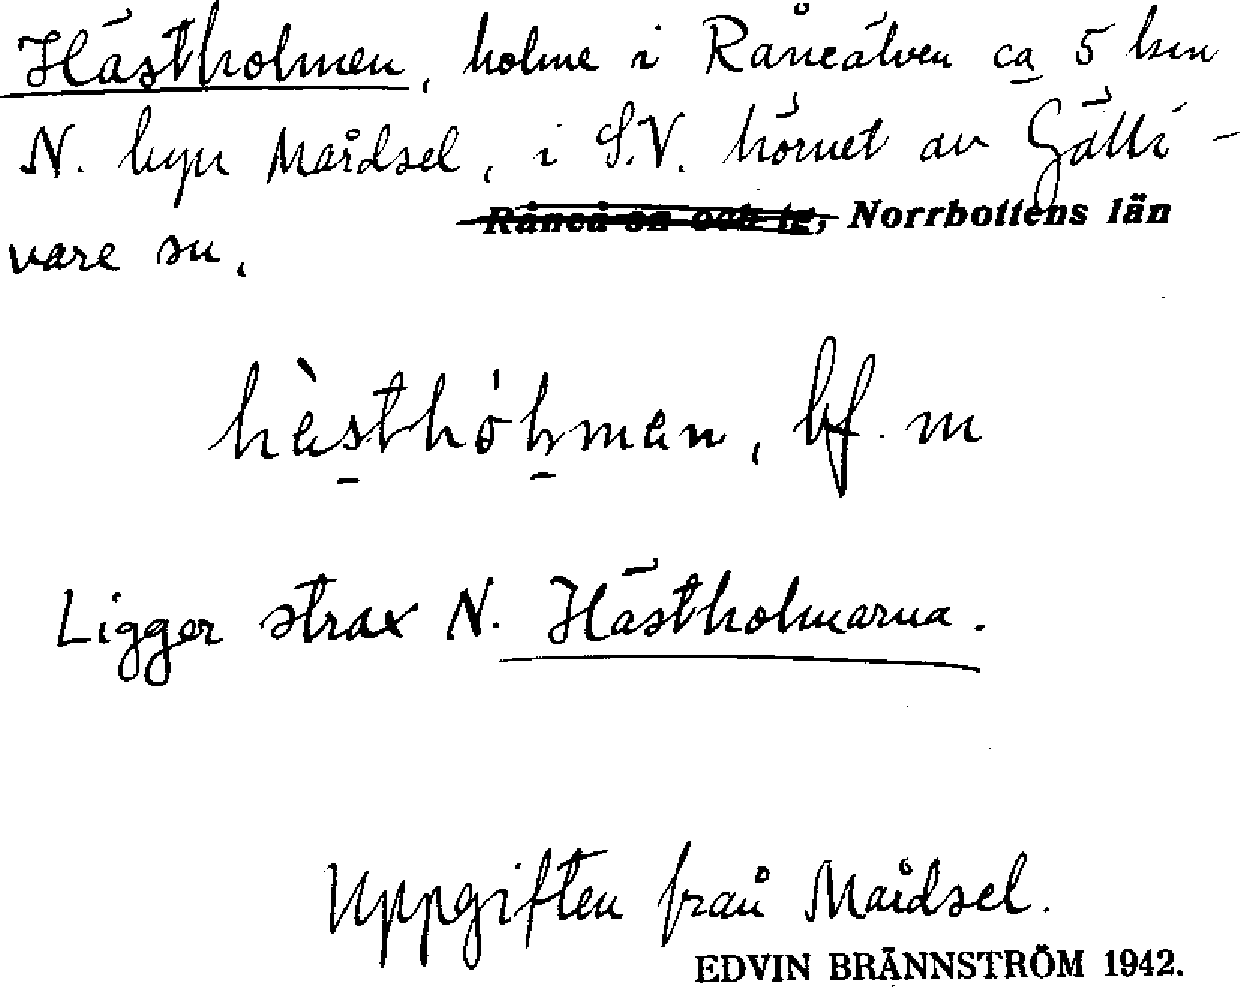 Hästholmen, holme i Råneälven ca 5 km
N. byn Mårdsel, i S.V. hörnet av Gälli-
Råneå sn och tg, Norrbottens län
vare sn.
hästhòḷmen, bf. m
Ligger strax N. Hästholmarna.
Uppgiften från Mårdsel.
EDVIN BRÄNNSTRÖM 1942.